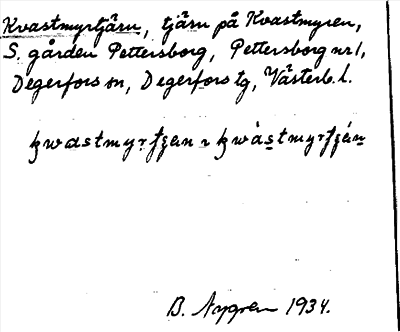 Kvastmyrtjärn, tjärn på Kvastmyren,
S. gården Pettersborg, Pettersborg nr 1,
Degerfors sn, Degerfors tg, Västerb. l.
B. Nygren 1934.